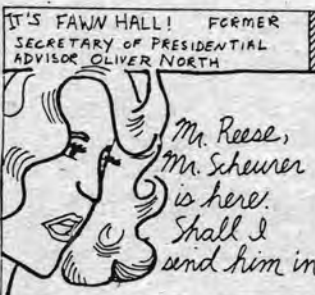 IT'S FAWN HALL! FORMER
SECRETARY OF PRESIDENTIAL
ADVISOR OLIVER NORTH
Mr. Reese,
Mr. Scheurer
is here.
Shall I
send him in